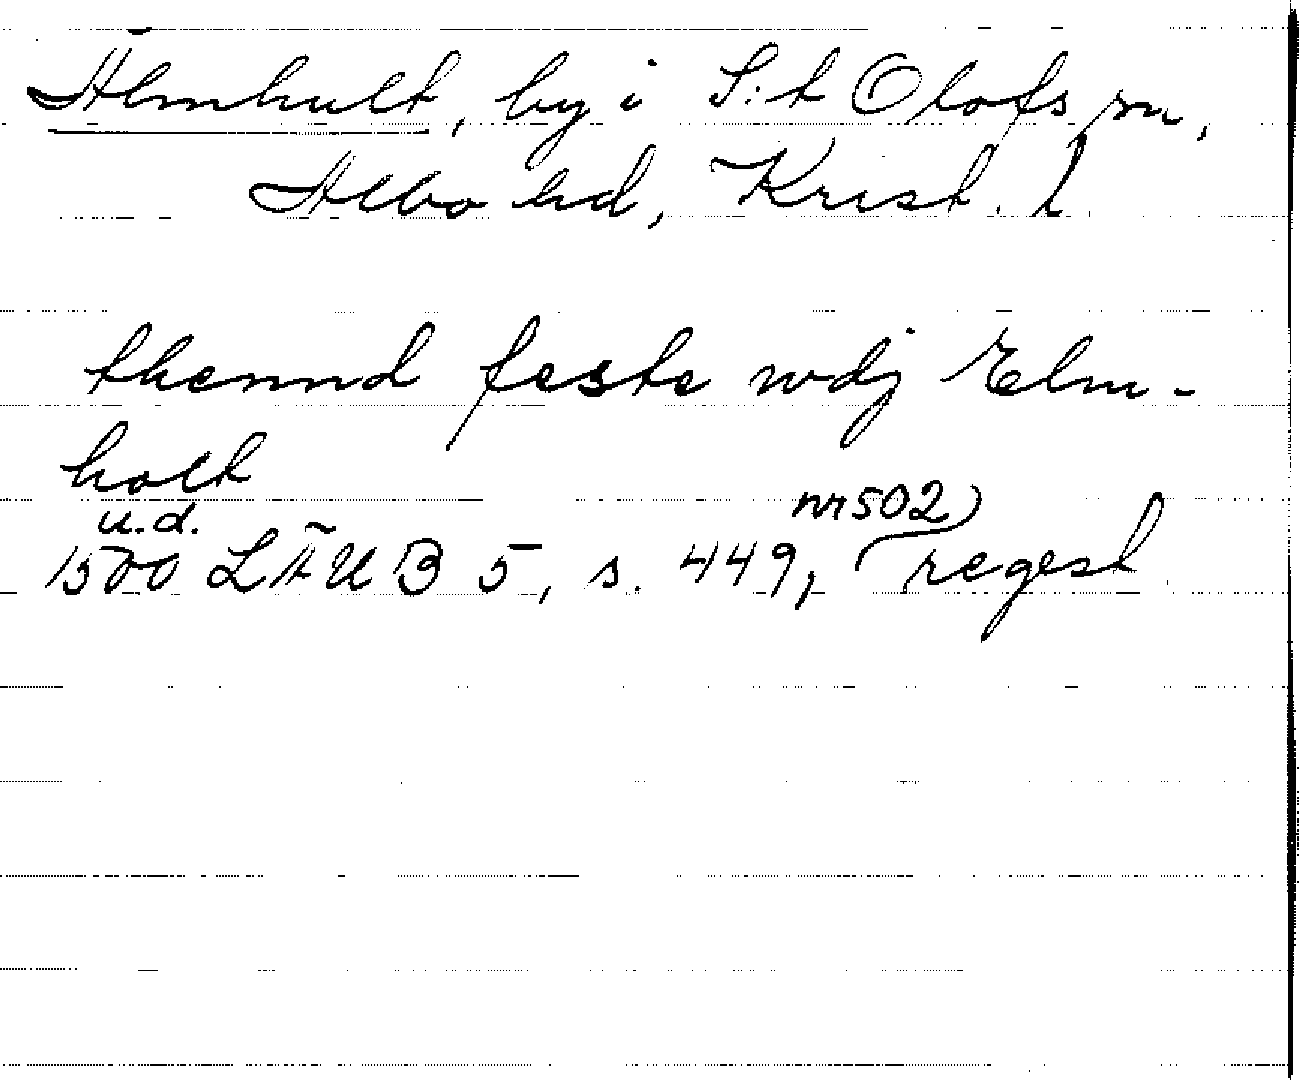 Älmhult, by i S:t Olofs sn,
Albo hd, Krist. l
thennd feste wdj Elm-
holt
u.d.
1500 LÄUB 5, s. 449, (regest
nr 502)